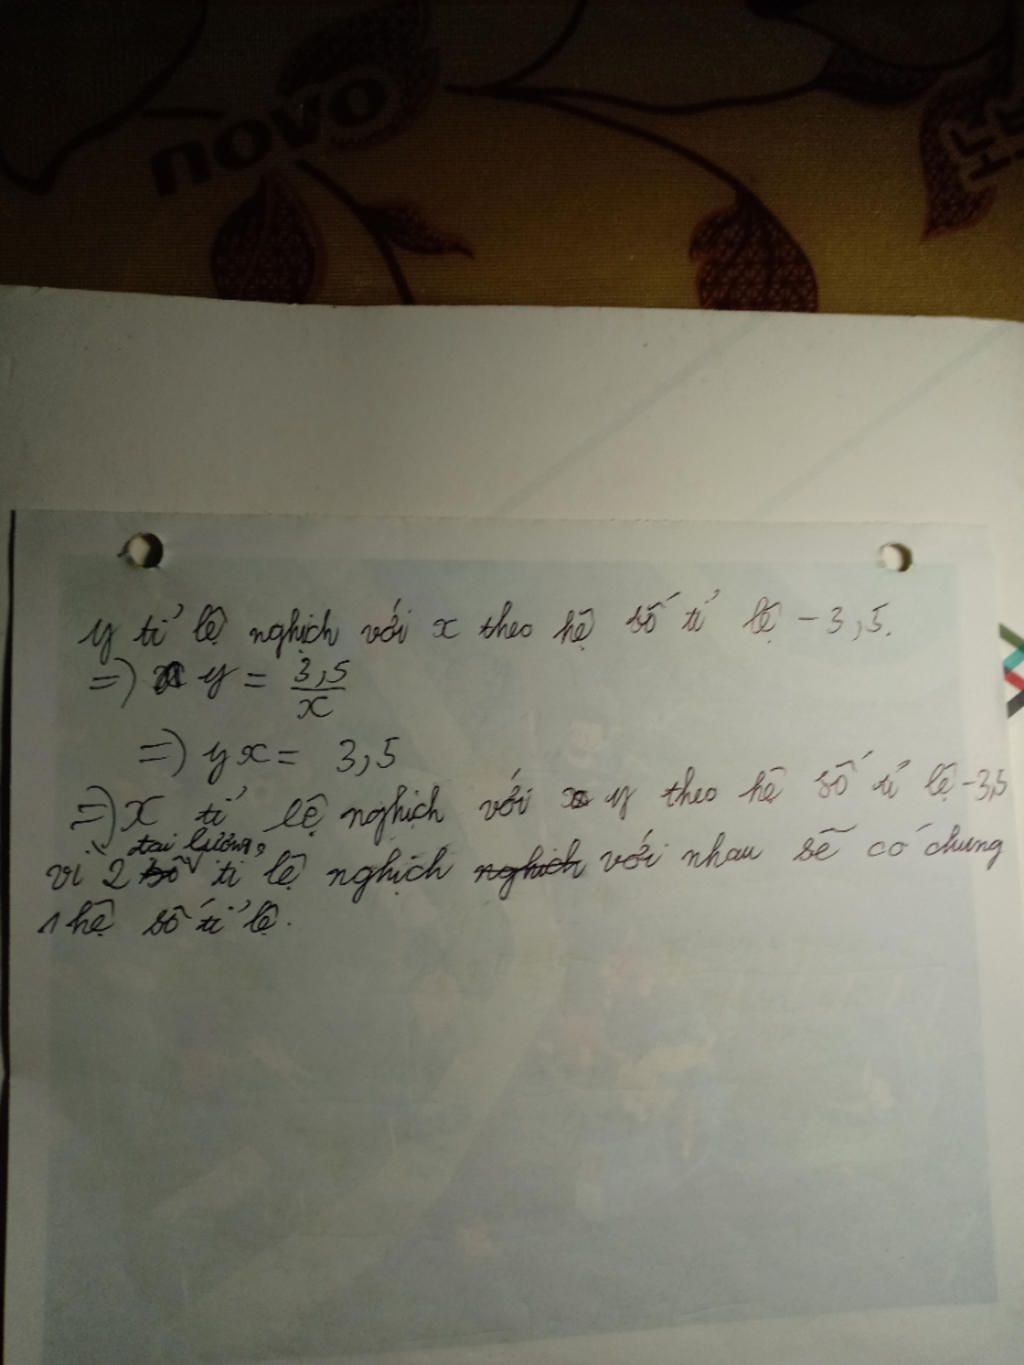 novo
y tỉ lệ nghịch với x theo hệ số tỉ lệ -3,5.
=) y = 3,5/x
=) yx = 3,5
=) x tỉ lệ nghịch với y theo hệ số tỉ lệ -3,5
đại lượng
vì 2 tỉ lệ nghịch nghịch với nhau sẽ có chung
1 hệ số tỉ lệ.